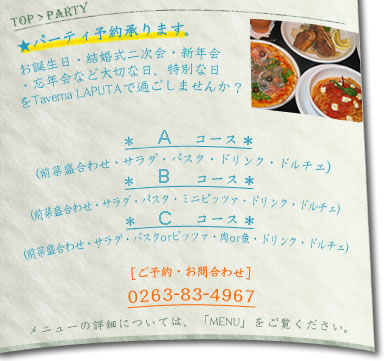 TOP > PARTY
★パーティ予約承ります。
お誕生日・結婚式二次会・新年会
・忘年会など大切な日、特別な日
をTaverna LAPUTAで過ごしませんか？
＊ A コース＊
(前菜盛合わせ・サラダ・パスタ・ドリンク・ドルチェ)
＊ B コース＊
(前菜盛合わせ・サラダ・パスタ・ミニピッツァ・ドリンク・ドルチェ)
＊ C コース＊
(前菜盛合わせ・サラダ・パスタorピッツァ・肉or魚・ドリンク・ドルチェ)
[ご予約・お問合わせ]
0263-83-4967
メニューの詳細については、「MENU」をご覧ください。